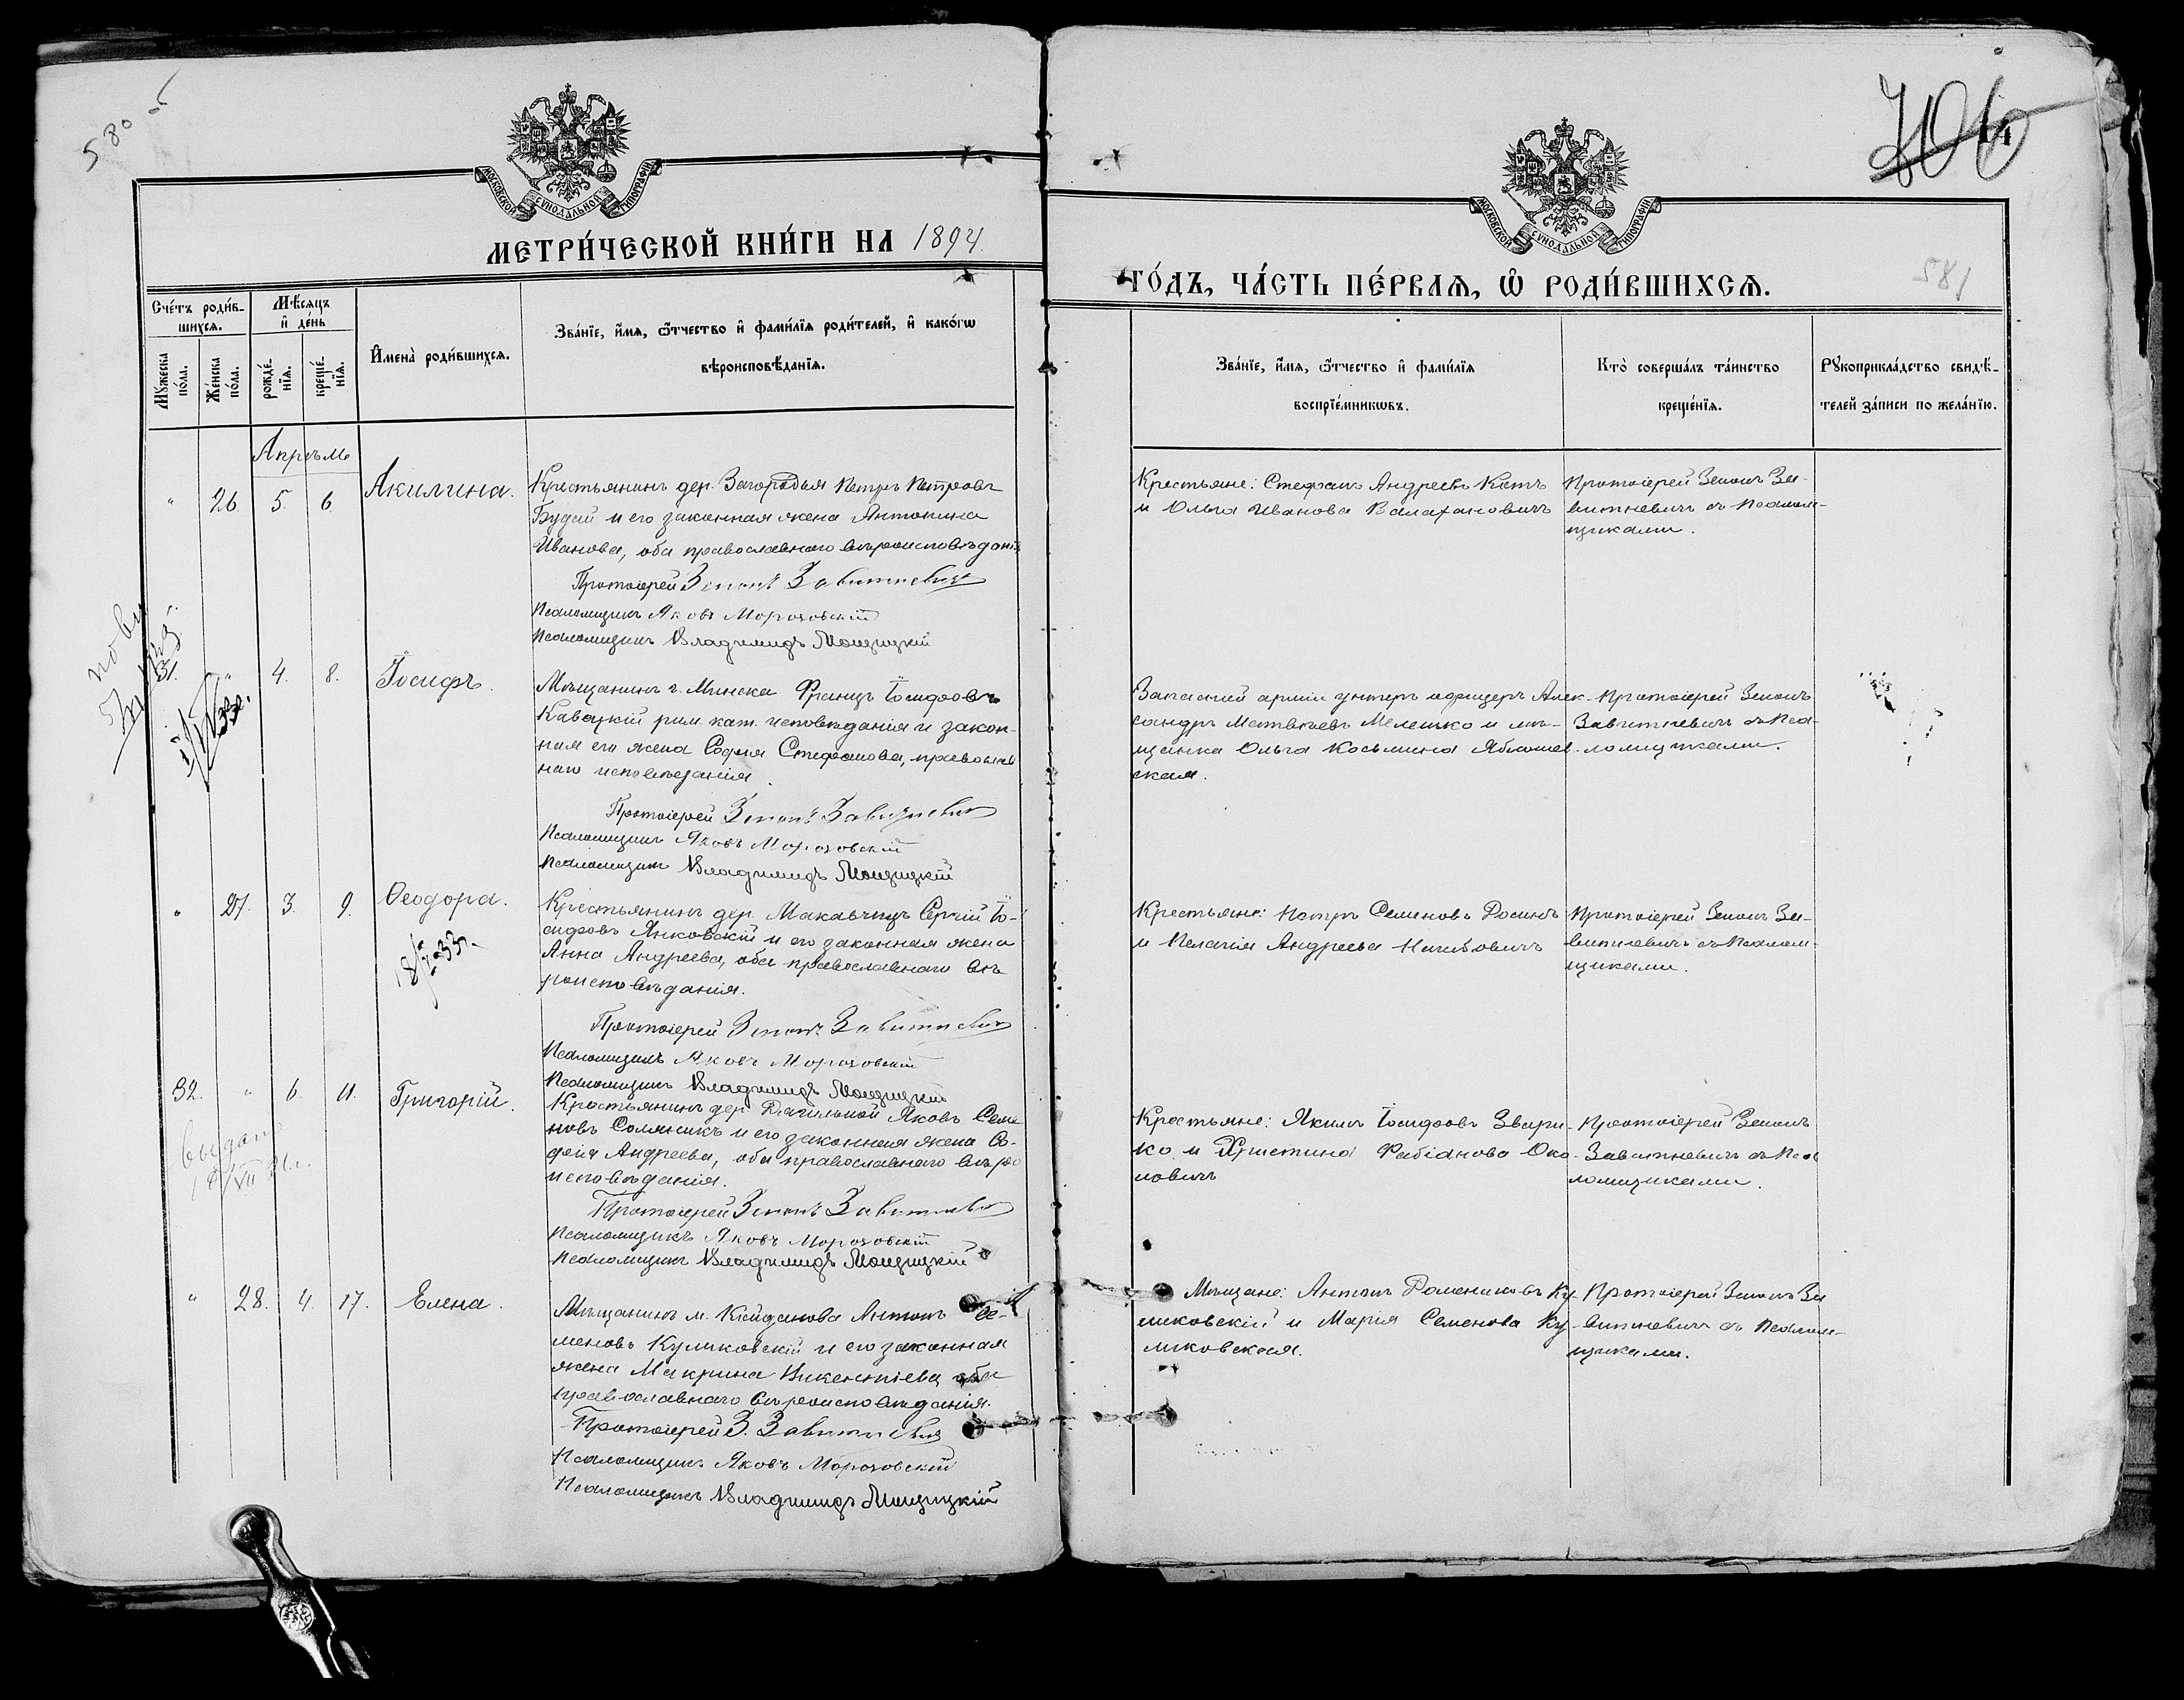 580
МОСКОВСКОЙ СѴНОДАЛЬНОЙ ТИПОГРАФІИ
МЕТРИ́ЧЕСКОЙ КНИ́ГИ НА 1894
Сче́тъ роди́в-
шихсѧ.
Мѣ́сѧцъ
и҆ де́нь
Мꙋ́жеска
по́ла.
Же́нска
по́ла.
рожде́-
нїѧ.
креще́-
нїѧ.
И҆мена̀ роди́вшихсѧ.
Зва́нїе, и҆́мѧ, ѻ҆́тчество и҆ фами́лїѧ роди́телей, и҆ како́гѡ
вѣроисповѣ́данїѧ.
Апрѣль
" 26. 5. 6. Акилина.
Крестьянинъ дер. Загорядья Петръ Петровъ
Будай и его законная жена Антонина
Иванова, оба православнаго вѣроисповѣданія
Протоіерей Зенонъ Завитневичъ
Псаломщикъ Яковъ Морозовскій
Псаломщикъ Владимиръ Мощицкій
31. " 4. 8. Іосифъ.
Мѣщанинъ г. Минска Францъ Іосифовъ
Кавецкій рим. кат. исповѣданія и закон-
ная его жена Софія Стефанова, православ
наго исповѣданія.
Протоіерей Зенонъ Завитневичъ
Псаломщикъ Яковъ Морозовскій
Псаломщикъ Владимиръ Мощицкій
" 27. 3. 9. Ѳеодора.
Крестьянинъ дер. Макавчицъ Сергій Іо-
сифовъ Янковскій и его законная жена
Анна Андреева, оба православнаго вѣ
роисповѣданія.
Протоіерей Зенонъ Завитневичъ
Псаломщикъ Яковъ Морозовскій
Псаломщикъ Владимиръ Мощицкій
32. " 6. 11. Григорій.
Крестьянинъ дер. Яковъ Семе
новъ Соляникъ и его законная жена Со-
фія Андреева, оба православнаго вѣро
исповѣданія.
выдано
Протоіерей Зенонъ Завитневичъ
Псаломщикъ Яковъ Морозовскій
Псаломщикъ Владимиръ Мощицкій
" 28. 4. 17. Елена.
Мѣщанинъ м. Койданова Антонъ Се-
меновъ Куликовскій и его законная
жена Макрина Викентіева оба
православнаго вѣроисповѣданія.
Протоіерей З. Завитневичъ
Псаломщикъ Яковъ Морозовскій
Псаломщикъ Владимиръ Мощицкій
МОСКОВСКОЙ СѴНОДАЛЬНОЙ ТИПОГРАФІИ
ГО́ДЪ, ЧА́СТЬ ПЕ́РВАѦ, Ѽ РОДИ́ВШИХСѦ.
581
Зва́нїе, и҆́мѧ, ѻ҆́тчество и҆ фами́лїѧ
воспрїе́мникѡвъ.
Кто̀ соверша́лъ та́инство
креще́нїѧ.
Рꙋкоприкла́дство свидѣ́-
телей за́писи по жела́нїю.
Крестьяне: Стефанъ Андреевъ Котъ
и Ольга Иванова Валаханович
Протоіерей Зенонъ За-
витневичъ съ псалом-
щиками.
Запасной арміи унтеръ офицеръ Алек-
сандръ Матвѣевъ Мелешко и мѣ-
щанка Ольга Косьмина Яблонов-
ская.
Протоіерей Зенонъ
Завитневичъ съ пса-
ломщиками.
Крестьяне: Петръ Семеновъ
и Пелагія Андреева
Протоіерей Зенонъ За-
витневичъ съ псалом-
щиками.
Крестьяне: Якимъ Іосифовъ Звари-
ко и Христина Фабіанова Око-
ловичъ
Протоіерей Зенонъ
Завитневичъ съ пса
ломщиками.
Мѣщане: Антонъ Домениковъ Ку-
ликовскій и Марія Семенова Ку-
ликовская.
Протоіерей Зенонъ За
витневичъ съ псалом-
щиками.